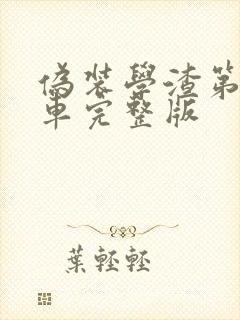 偽裝學渣第
車完整版
葉輕輕